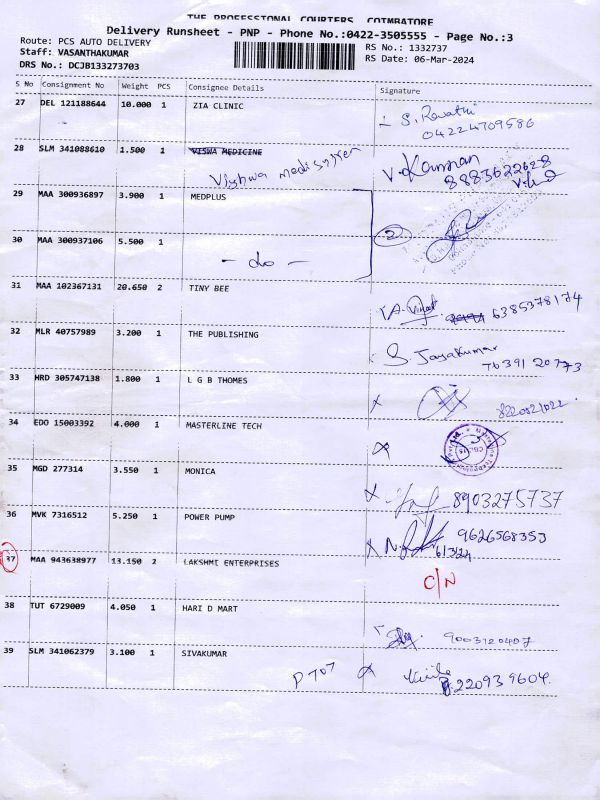 THE PROFESSIONAL COURIERS, COIMBATORE
Delivery Runsheet - PNP - Phone No.:0422-3505555 - Page No.:3
Route: PCS AUTO DELIVERY
RS No.: 1332737
Staff: VASANTHAKUMAR
RS Date: 06-Mar-2024
DRS No.: DCJB133273703
S No Consignment No Weight PCS Consignee Details Signature
27 DEL 121188644 10.000 1 ZIA CLINIC S. Revathi
04224709586
28 SLM 341088610 1.500 1 VISWA MEDICINE V. Kannan
Vishwa medisytren 8883622628
29 MAA 300936897 3.900 1 MEDPLUS
2
30 MAA 300937106 5.500 1
- do -
31 MAA 102367131 20.650 2 TINY BEE
6385378174
32 MLR 40757989 3.200 1 THE PUBLISHING S. Jayakumar
7639120773
33 HRD 305747138 1.800 1 L G B THOMES
x 8220821022
34 EDO 15003392 4.000 1 MASTERLINE TECH
35 MGD 277314 3.550 1 MONICA
x 8903275737
36 MVK 7316512 5.250 1 POWER PUMP
x 9626568353
6/3/24
37 MAA 943638977 13.150 2 LAKSHMI ENTERPRISES
C/N
38 TUT 6729009 4.050 1 HARI D MART
9003120407
39 SLM 341062379 3.100 1 SIVAKUMAR
P707 8220939604.